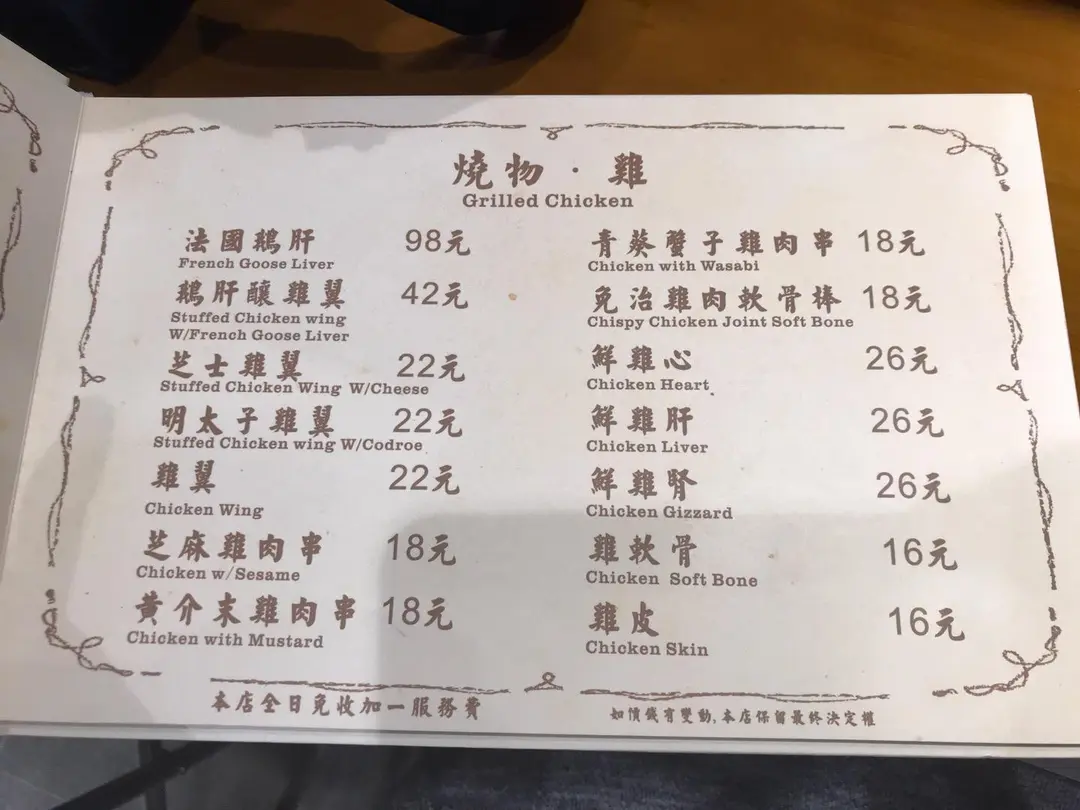 燒物·雞
Grilled Chicken
法國鵝肝 98元
French Goose Liver
鵝肝釀雞翼 42元
Stuffed Chicken wing
W/French Goose Liver
芝士雞翼 22元
Stuffed Chicken Wing W/Cheese
明太子雞翼 22元
Stuffed Chicken wing W/Codroe
雞翼 22元
Chicken Wing
芝麻雞肉串 18元
Chicken w/Sesame
黃介末雞肉串 18元
Chicken with Mustard
青葵蟹子雞肉串 18元
Chicken with Wasabi
免治雞肉軟骨棒 18元
Chispy Chicken Joint Soft Bone
鮮雞心 26元
Chicken Heart
鮮雞肝 26元
Chicken Liver
鮮雞腎 26元
Chicken Gizzard
雞軟骨 16元
Chicken Soft Bone
雞皮 16元
Chicken Skin
本店全日免收加一服務費
如價錢有變動,本店保留最終決定權